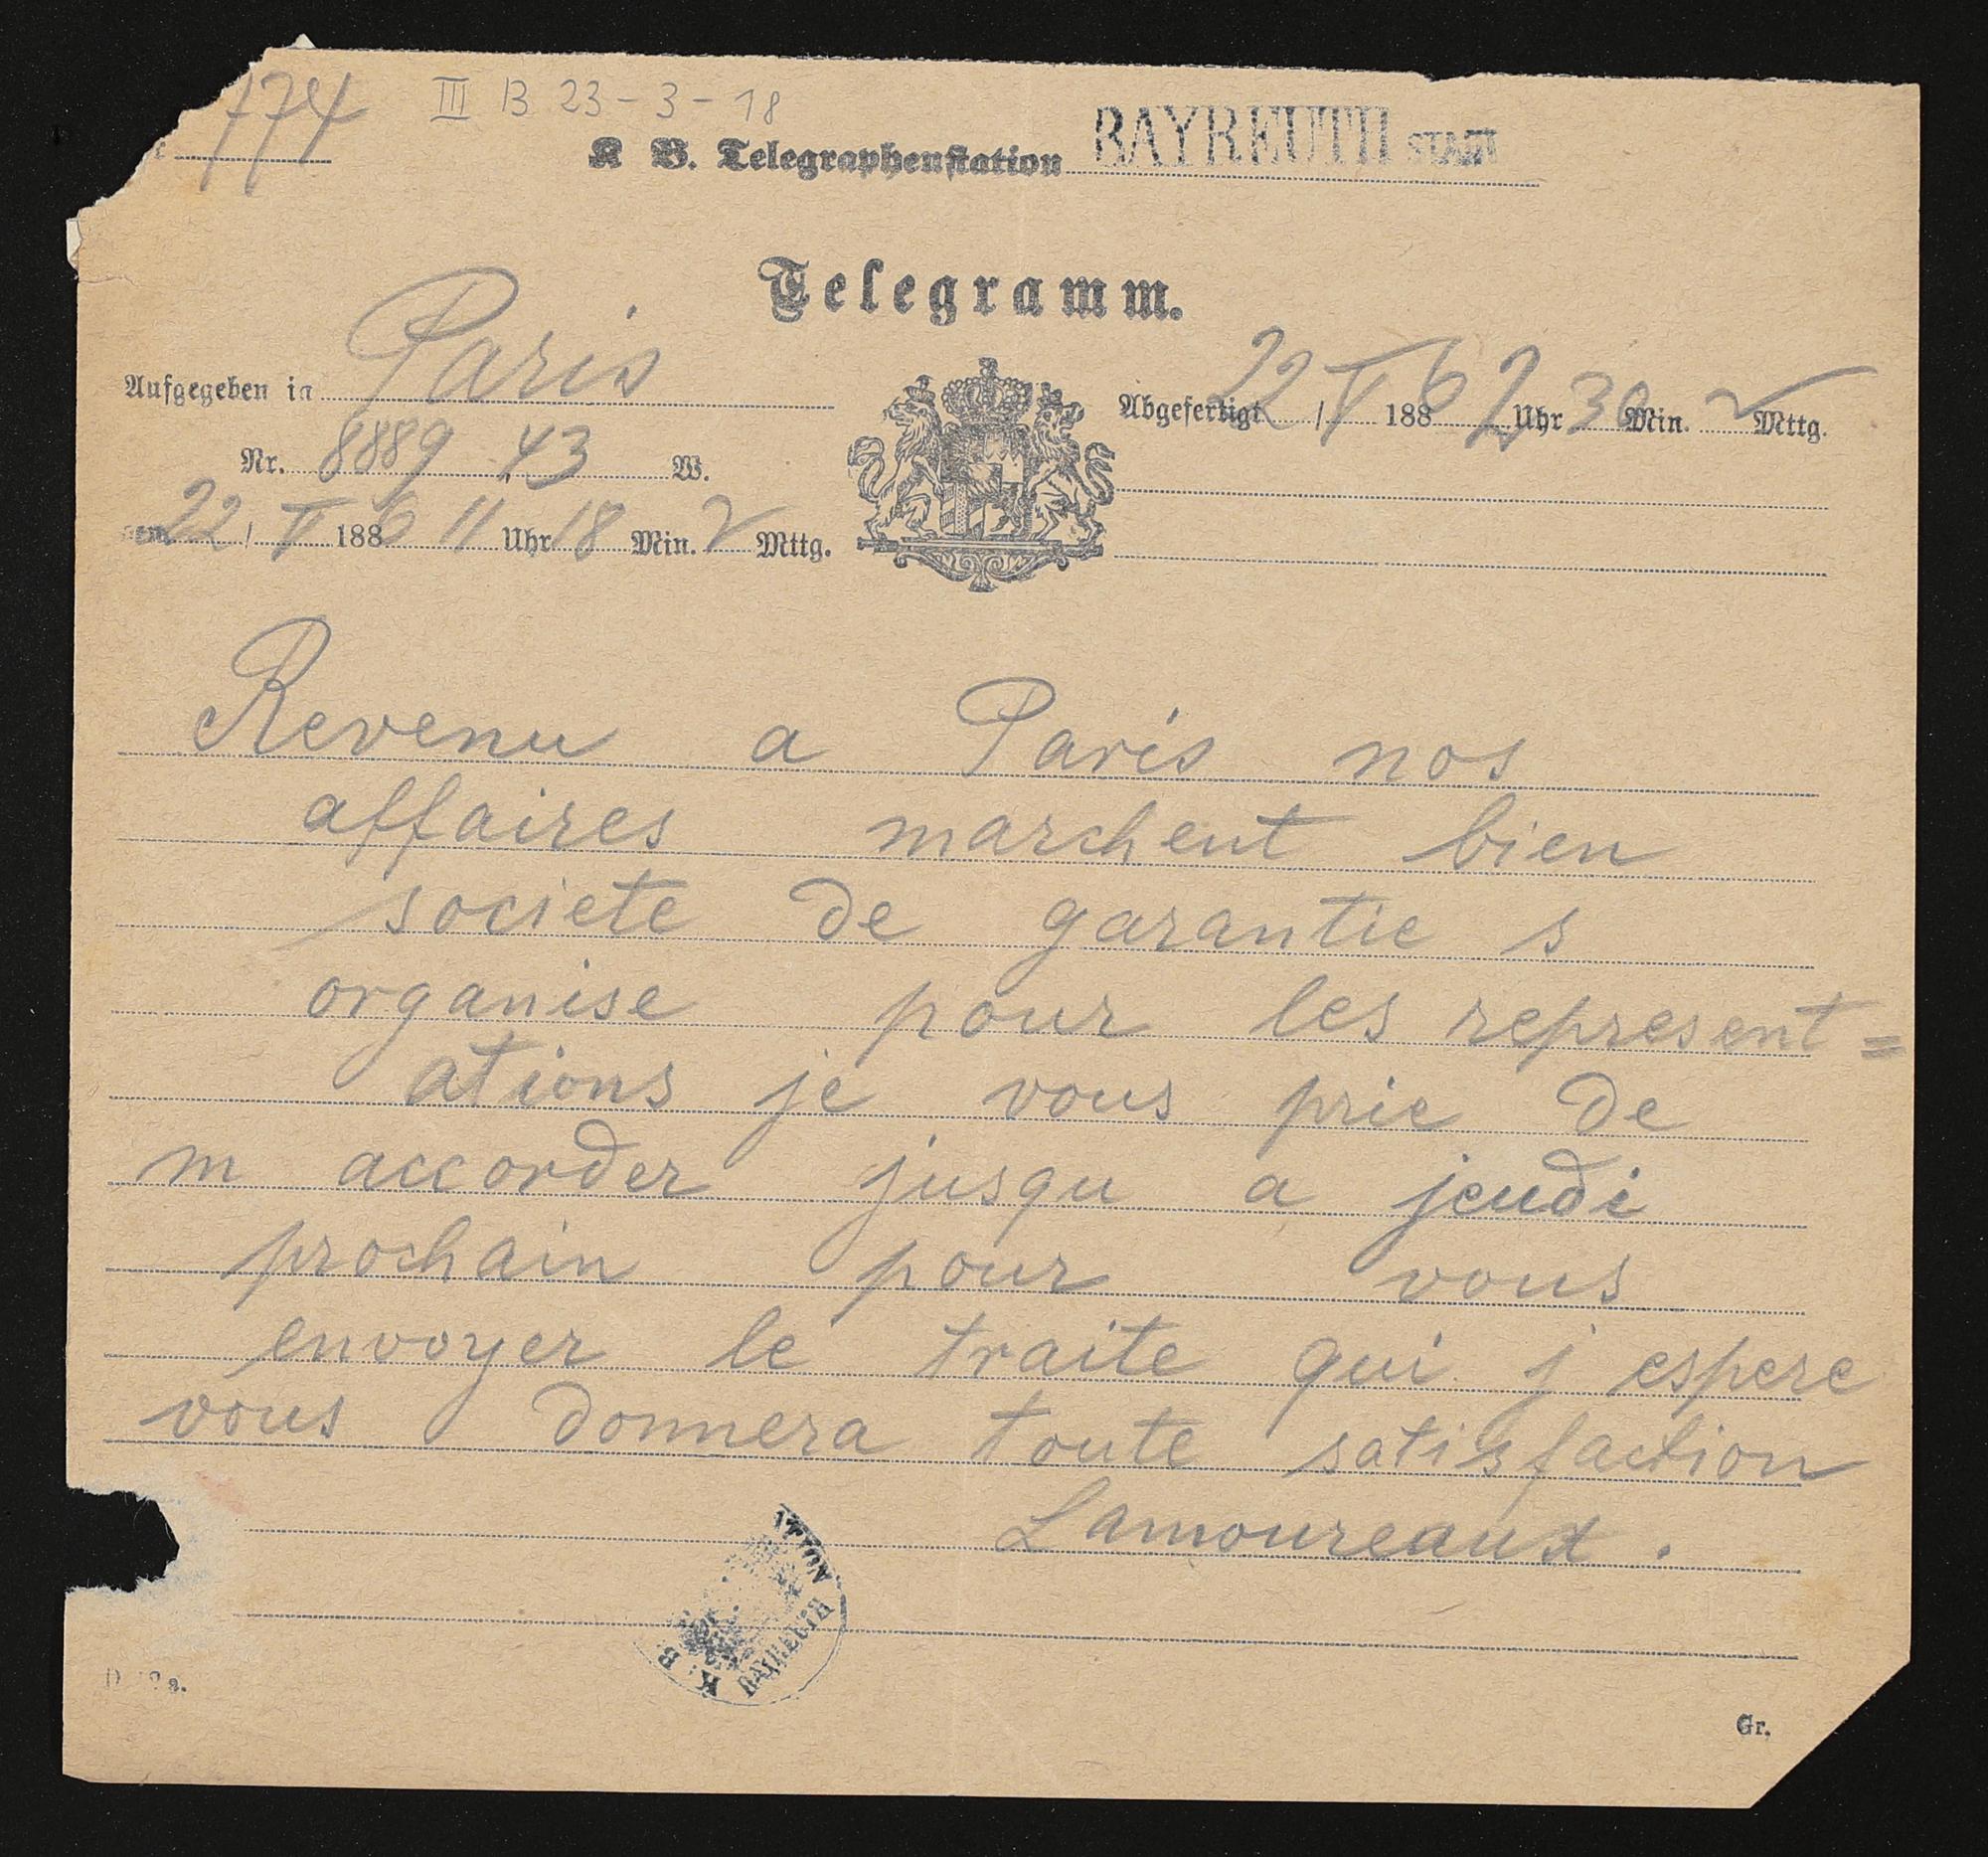 774 III B 23-3-18
K B. Telegraphenstation BAYREUTH STADT
Telegramm.
Aufgegeben in Paris
Nr. 8889 43 W.
22 / V 1886 11 Uhr 18 Min. V Mttg.
Abgefertigt 22 / V 1886 2 Uhr 30 Min. Mttg.
Revenu a Paris nos
affaires marchent bien
societe de garantie s
organise pour les represent=
ations je vous prie de
m accorder jusqu a jeudi
prochain pour vous
envoyer le traite qui j espere
vous donnera toute satisfaction
Lamoureaux.
K. B. BAYREUTH
Gr.